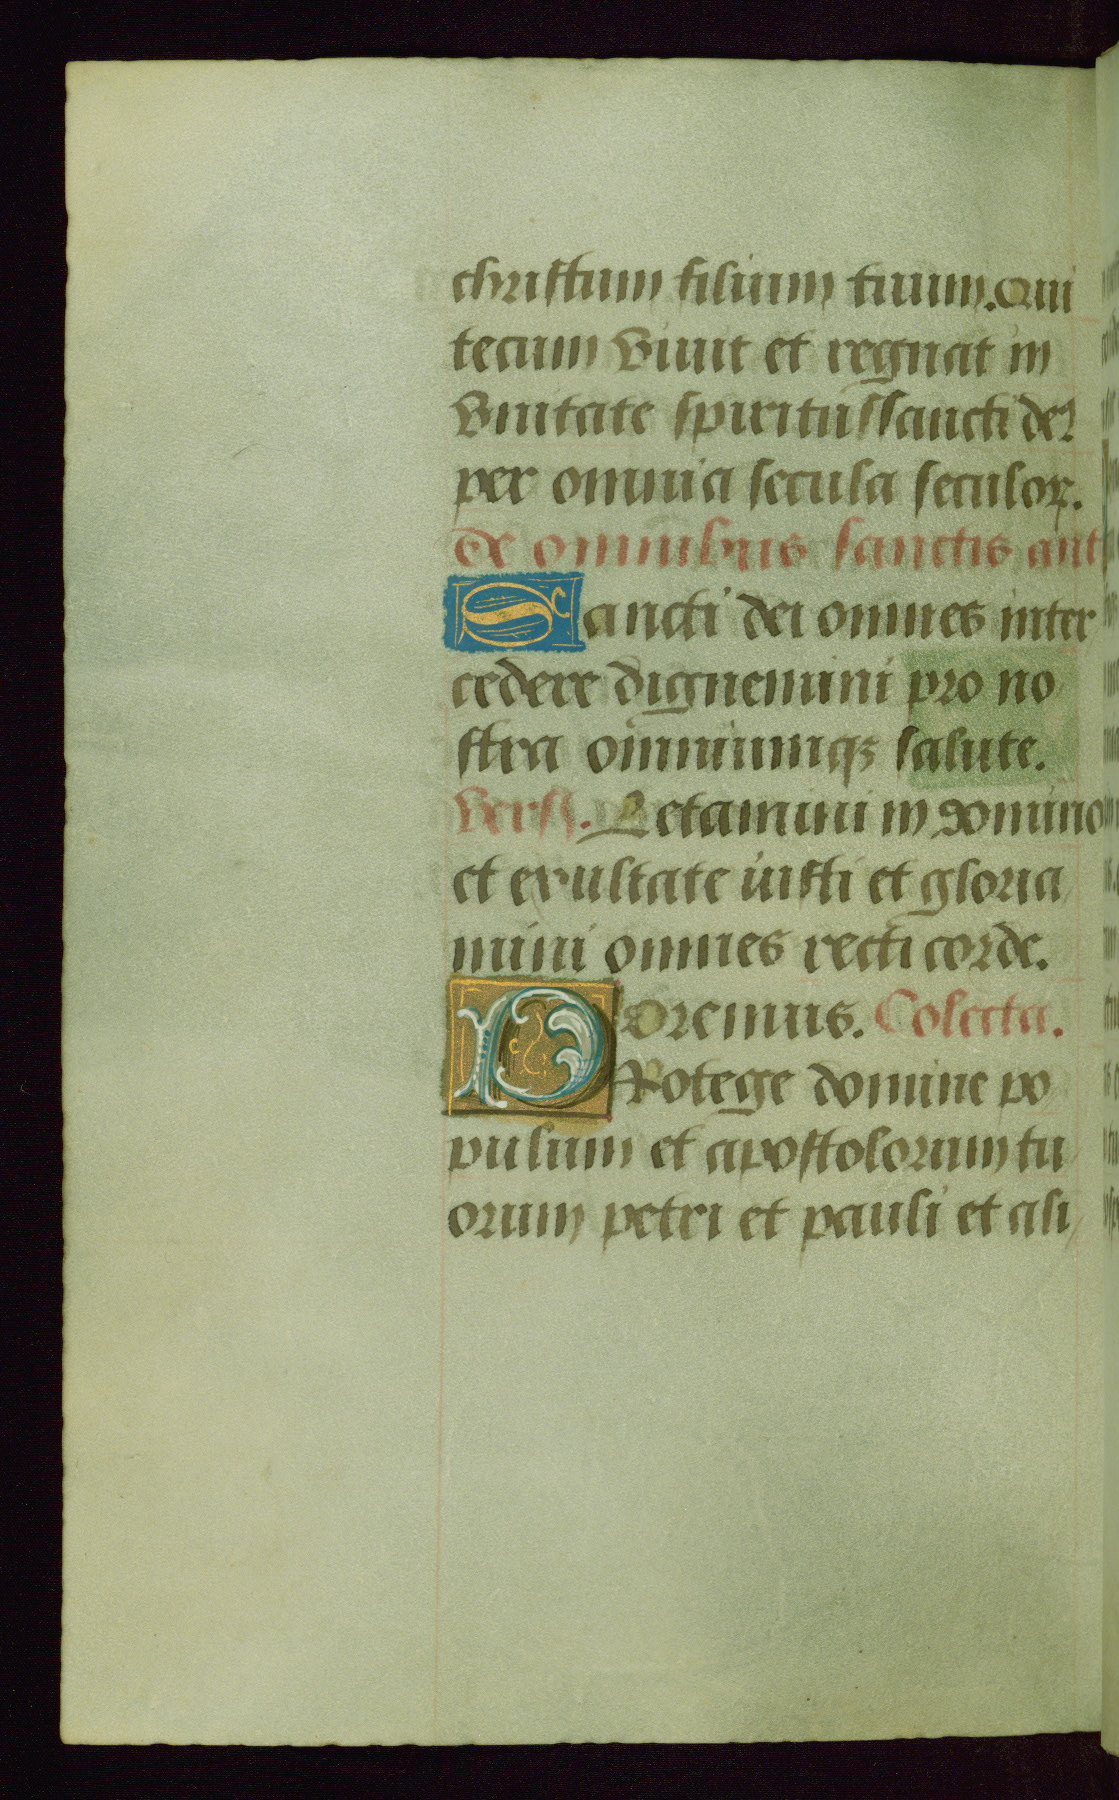 christum filium tuum. Qui
tecum viuit et regnat in
vnitate spiritussancti de?
per omnia secula seculoꝝ.
de omnibus sanctis ant
Sancti dei omnes inter
cedere dignemini pro no
stra omniumqꝫ salute.
Verss. Letamini in domino
et exultate iusti et gloria
mini omnes recti corde.
oremus. Colecta.
PRotege domine po
pulum et apostolorum tu
orum petri et pauli et ali